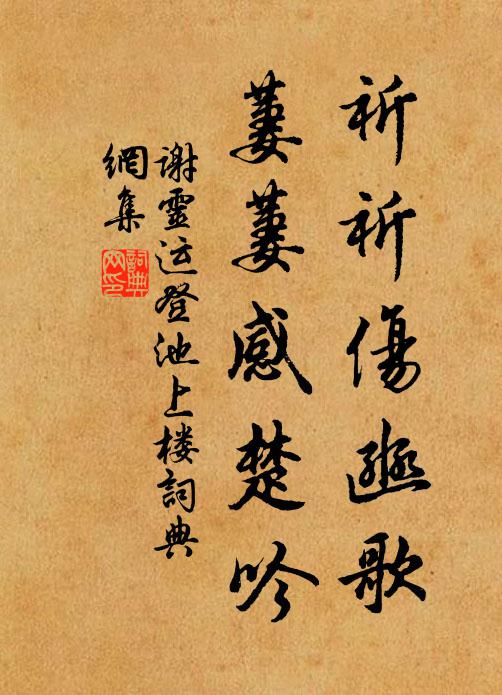 祈祈傷豳歌
萋萋感楚吟
謝靈运登池上楼詞典
網集
詞典
网印